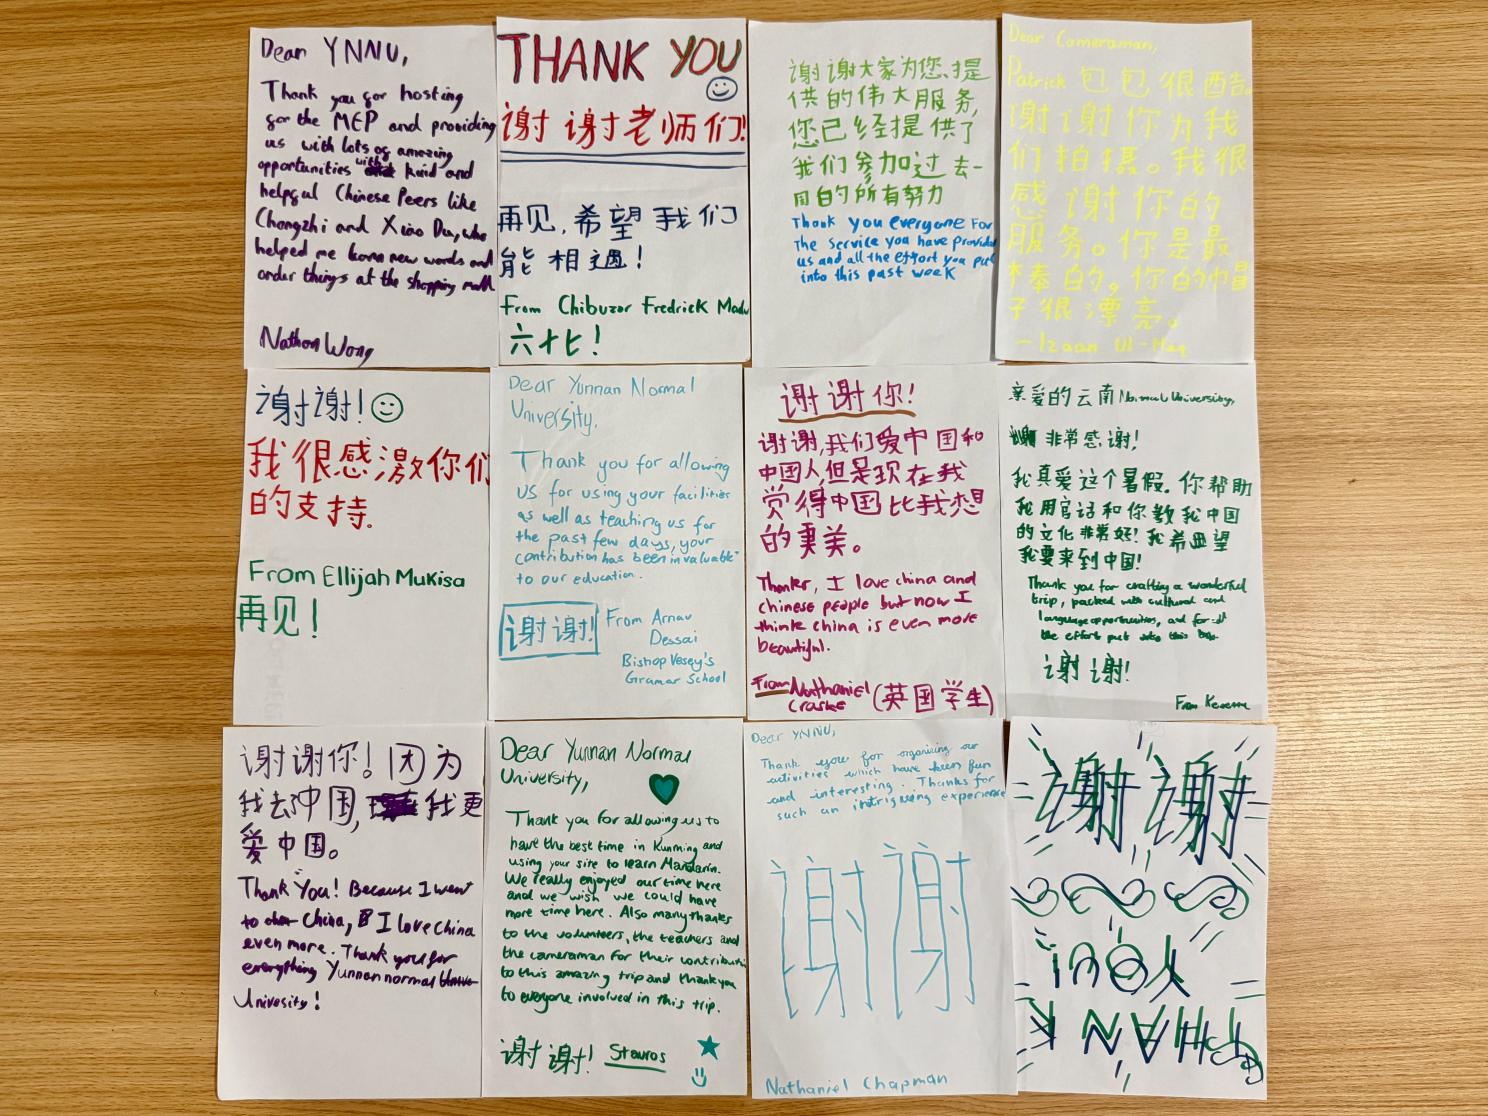 Dear YNNU,
Thank you for hosting
for the MEP and providing
us with lots of amazing
opportunities with kind and
helpful Chinese Peers like
Chongzhi and Xiao Du, who
helped me learn new words and
order things at the shopping mall
Nathan Wong
THANK YOU
谢谢老师们!
再见,希望我们
能相遇!
From Chibuzor Fredrick Madu
六十七!
谢谢大家为您提
供的伟大服务,
您已经提供了
我们参加过去一
周的所有努力
Thank you everyone For
The service you have provided
us and all the effort you put
into this past week
Dear Cameraman,
Patrick 包包很酷。
谢谢你为我
们拍摄。我很
感谢你的
服务。你是最
棒的。你的帽
子很漂亮。
- Izaan Ul-Haq
谢谢!
我很感激你们
的支持.
From Ellijah Mukisa
再见!
Dear Yunnan Normal
University,
Thank you for allowing
us for using your facilities
as well as teaching us for
the past few days, your
contribution has been invaluable
to our education.
谢谢!
From Arnav
Dessai
Bishop Vesey's
Gramar School
谢谢你!
谢谢,我们爱中国和
中国人,但是现在我
觉得中国比我想
的更美。
Thanks, I love china and
chinese people but now I
think china is even more
beautiful.
From Nathaniel
Craske (英国学生)
亲爱的云南 Normal University,
非常感谢!
我真爱这个暑假. 你帮助
我用官话和你教我中国
的文化非常好! 我希望
我要来到中国!
Thank you for crafting a wonderful
trip, packed with cultural and
language opportunities, and for all
the effort put into this trip.
谢谢!
From
谢谢你! 因为
我去中国, 我更
爱中国。
Thank You! Because I went
to China, I love China
even more. Thank you for
everything Yunnan normal
University!
Dear Yunnan Normal
University,
Thank you for allowing us to
have the best time in Kunming and
using your site to learn Mandarin.
We really enjoyed our time here
and we wish we could have
more time here. Also many thanks
to the volunteers, the teachers and
the cameraman for their contribution
to this amazing trip and thank you
to everyone involved in this trip.
谢谢! Stavros
Dear YNNU,
Thank you for organising our
activities which have been fun
and interesting. Thanks for
such an intriguing experience
谢谢
Nathaniel Chapman
谢谢
THANK
YOU!